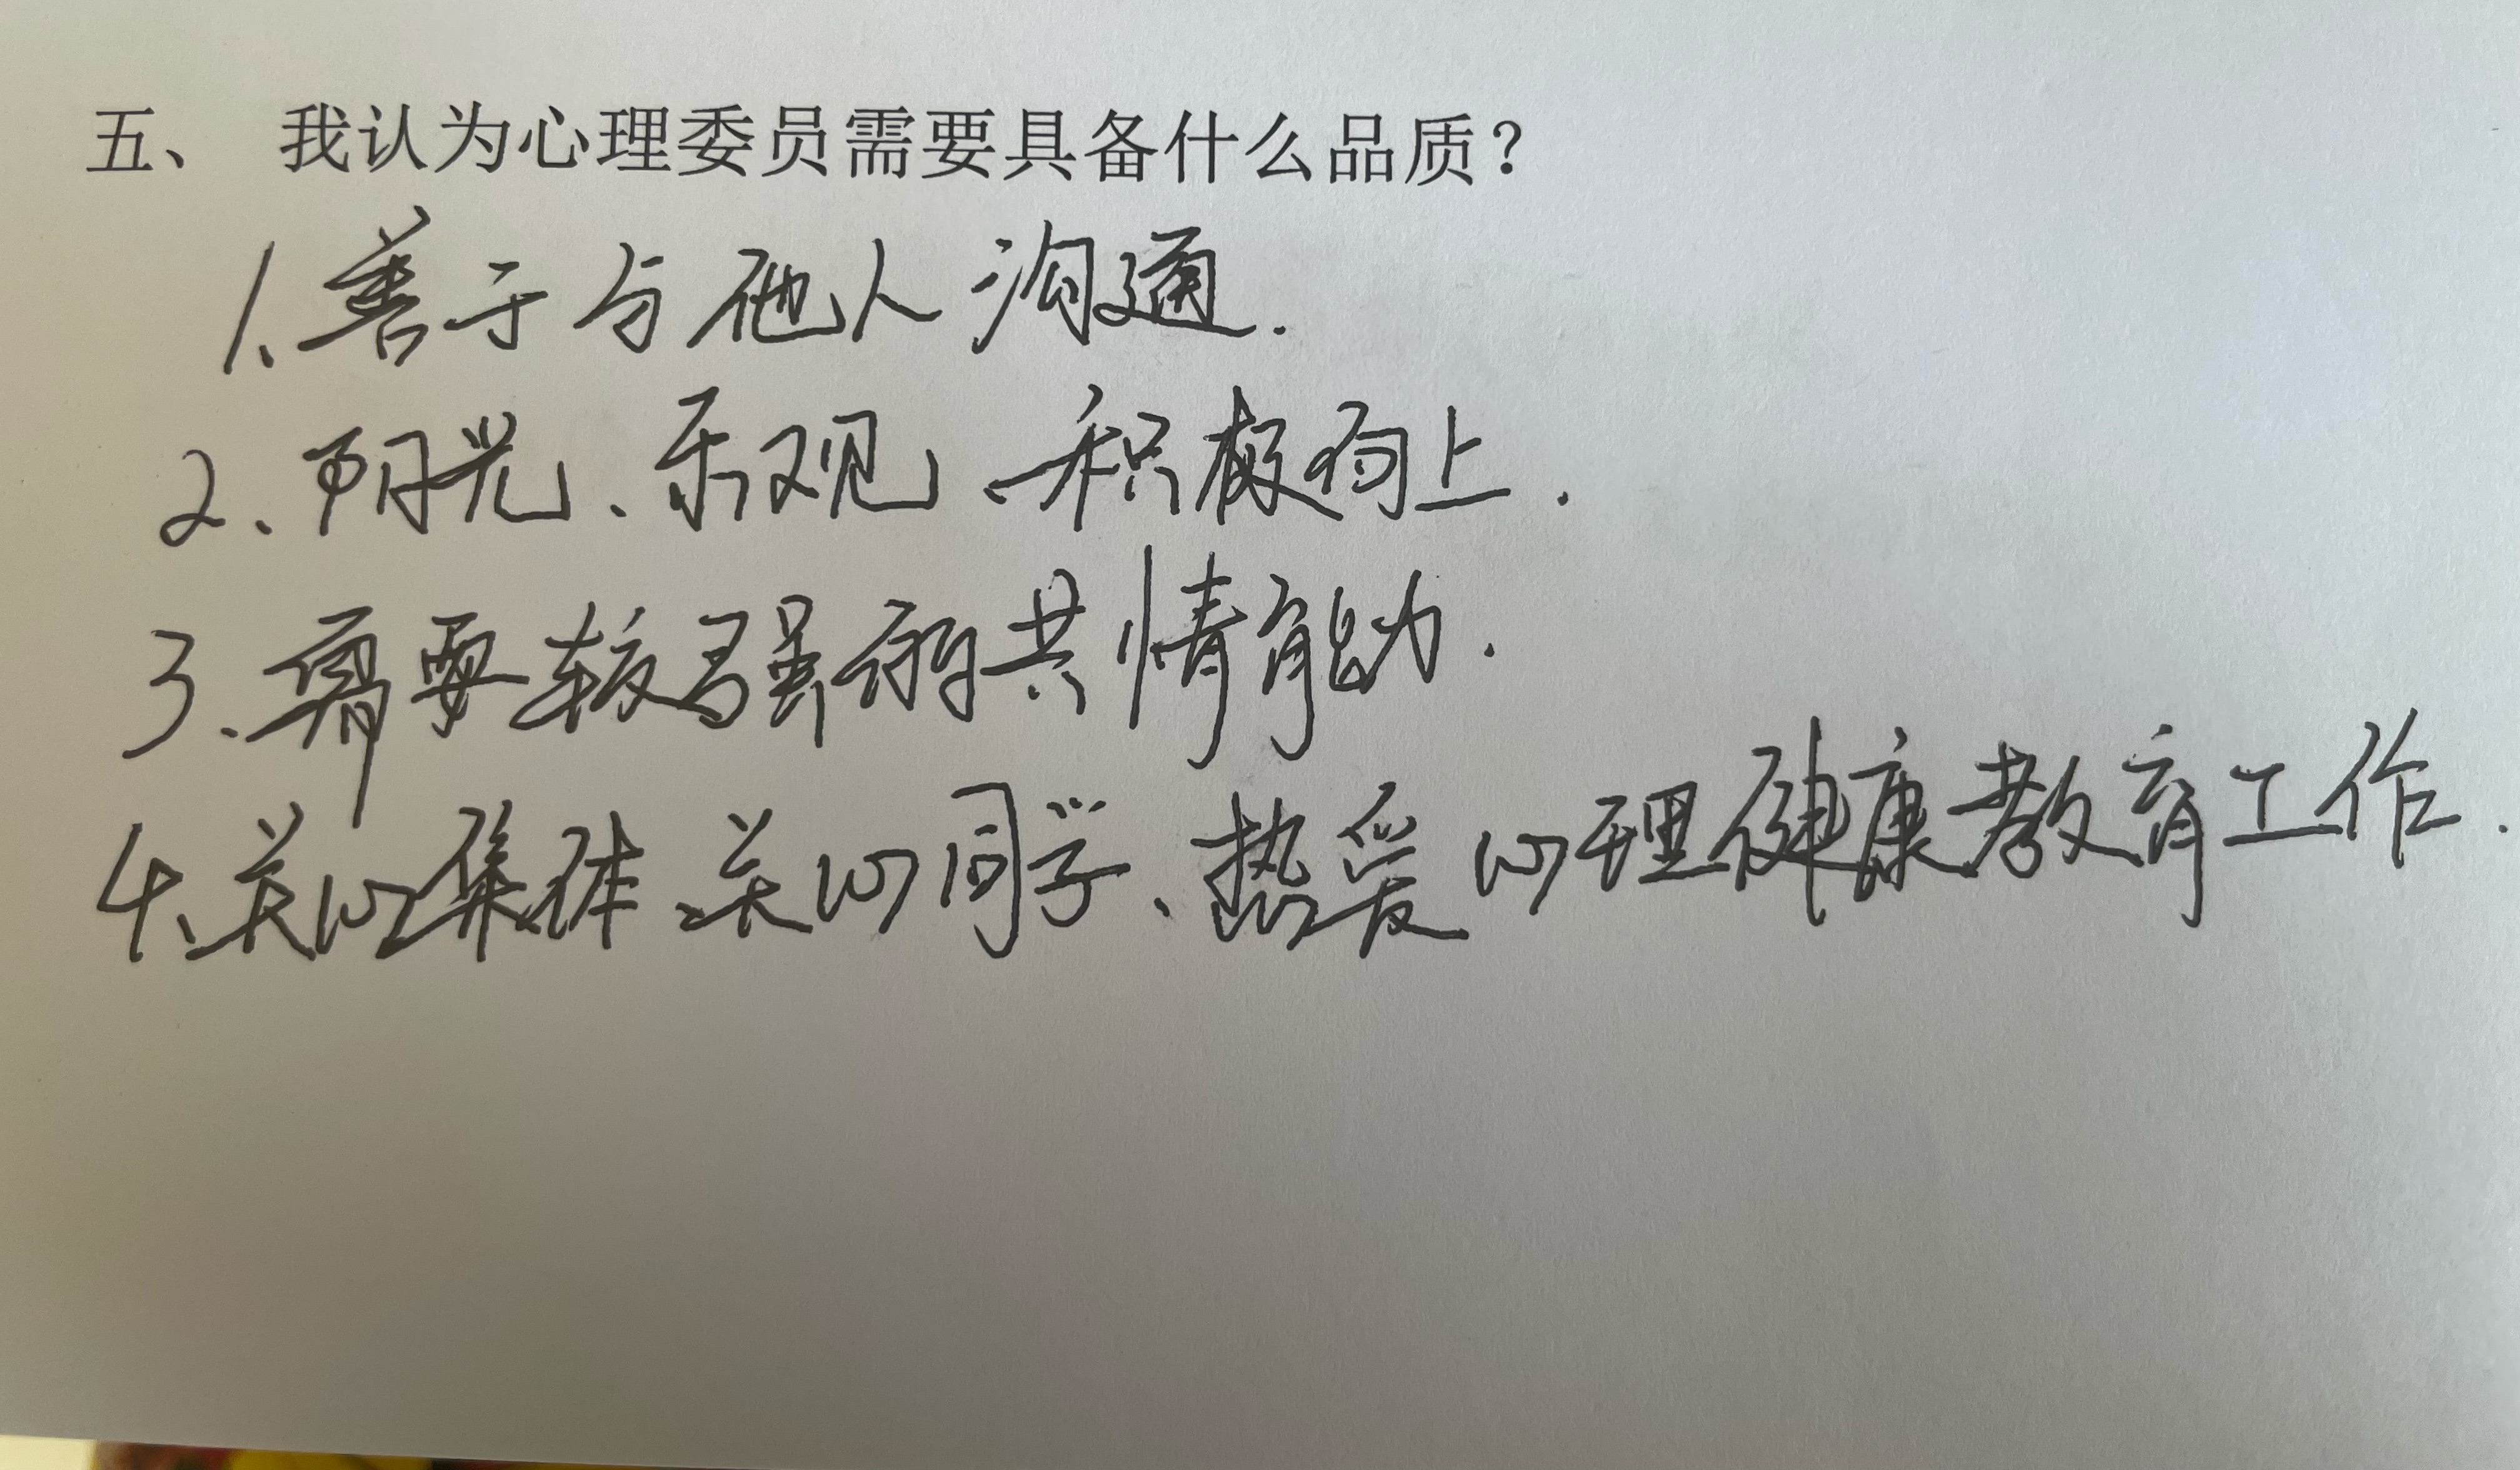 五、 我认为心理委员需要具备什么品质？
1、善于与他人沟通.
2、阳光、乐观、积极向上.
3、需要较强的共情能力.
4、关心集体、关心同学、热爱心理健康教育工作.